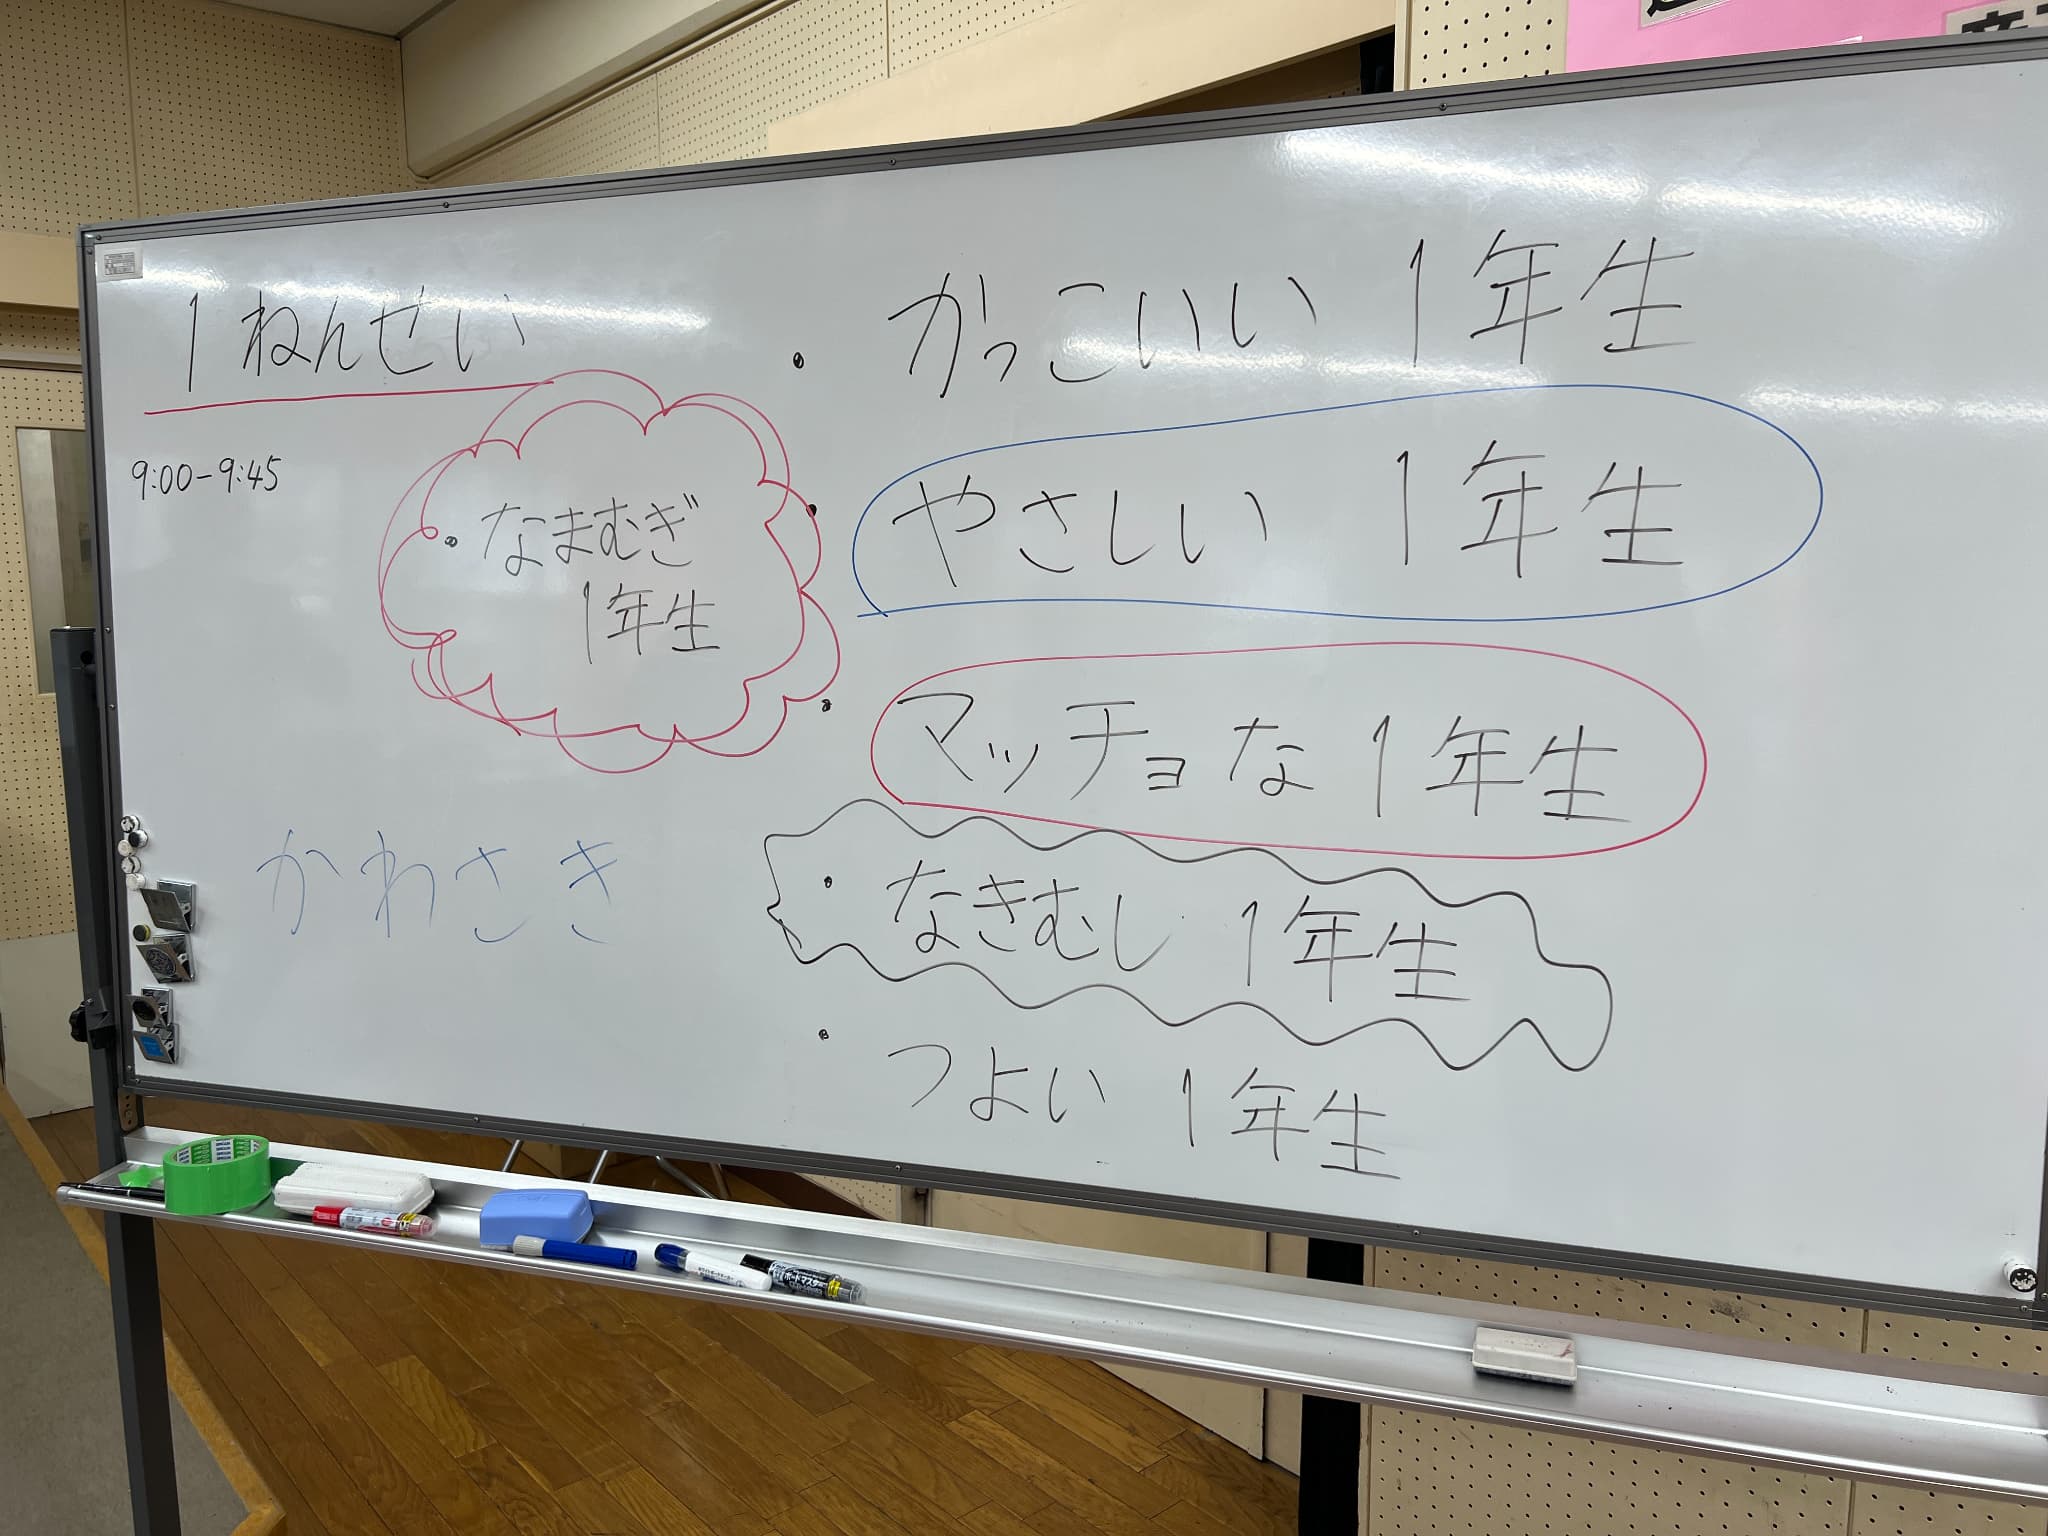 1ねんせい
9:00-9:45
・なまむぎ
1年生
かわさき
・かっこいい 1年生
・やさしい 1年生
・マッチョな 1年生
・なきむし 1年生
・つよい 1年生
ボードマスター